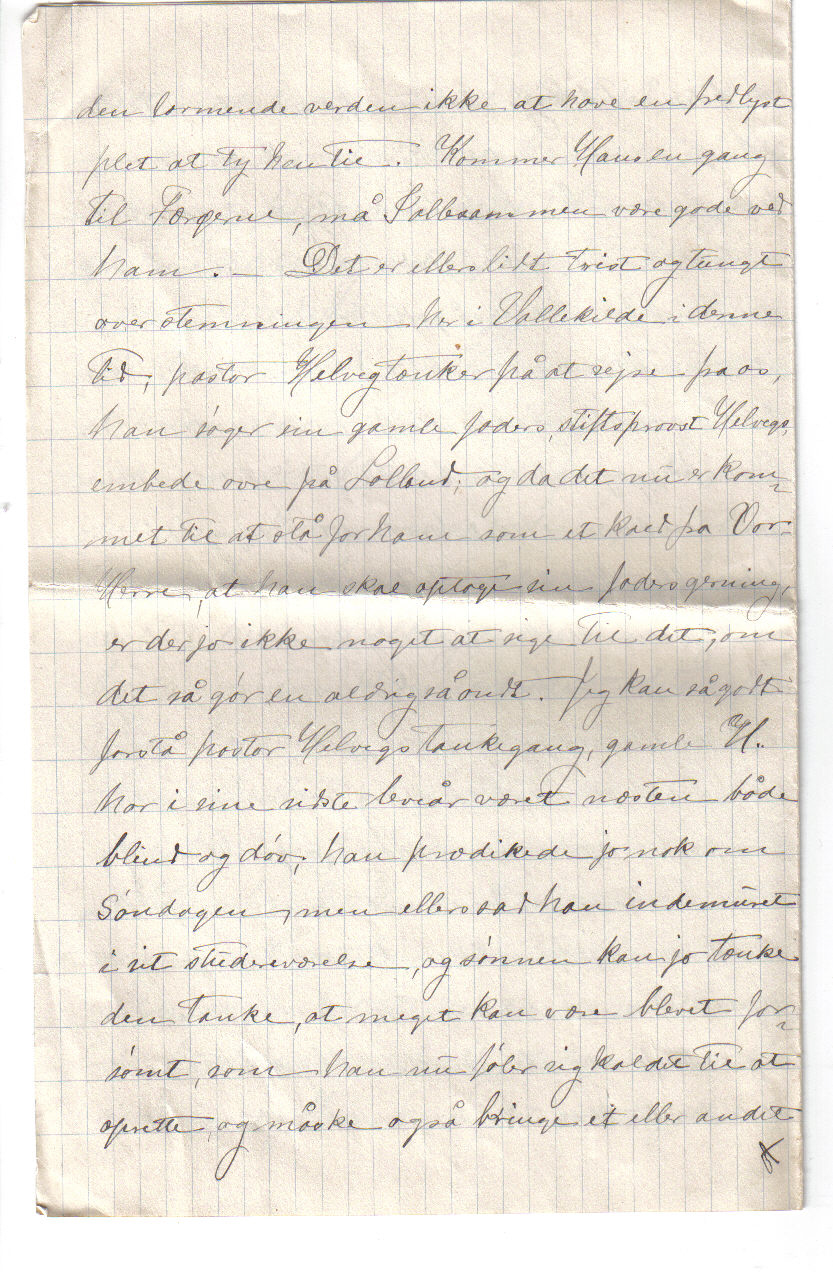 den larmende verden ikke at have en fredlyst
plet at ty hen til. Kommer Hans en gang
til Færøerne, må I allesammen være gode ved
ham. – Det er ellers lidt trist og tungt
over stemningen her i Vallekilde i denne
tid; pastor Helveg tænker på at rejse fra os,
han søger sin gamle faders, stiftsprovst Helvegs,
embede ovre på Lolland; og da det nu er kom-
met til at stå for ham som et kald fra Vor-
Herre, at han skal optage sin faders gerning,
er der jo ikke noget at sige til det, om
det så gør en aldrig så ondt. Jeg kan så godt
forstå pastor Helvegs tankegang, gamle H.
har i sine sidste leveår været næsten både
blind og døv; han prædikede jo nok om
Søndagen, men ellers sad han indemuret
i sit studereværelse, og sønnen kan jo tænke
den tanke, at meget kan være blevet for-
sømt, som han nu føler sig kaldet til at
oprette, og måske også bringe et eller andet